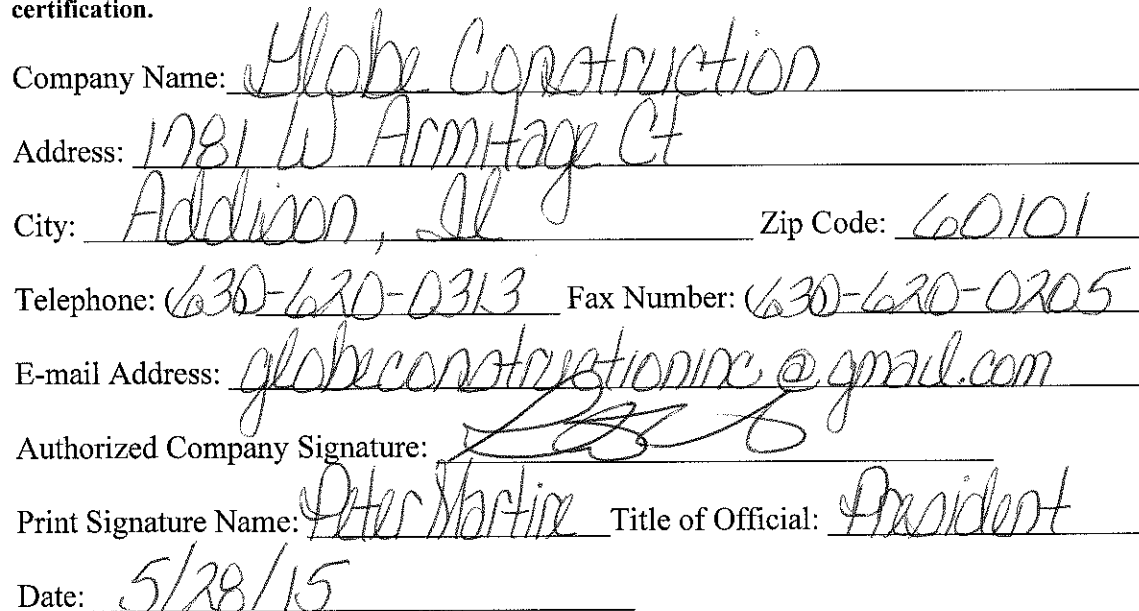 certification.
Company Name: Globe Construction
Address: 1781 W Armitage Ct
City: Addison, Il Zip Code: 60101
Telephone: (630-620-0313 Fax Number: (630-620-0205
E-mail Address: globeconstructioninc@gmail.com
Authorized Company Signature:
Print Signature Name: Peter Martire Title of Official: President
Date: 5/28/15